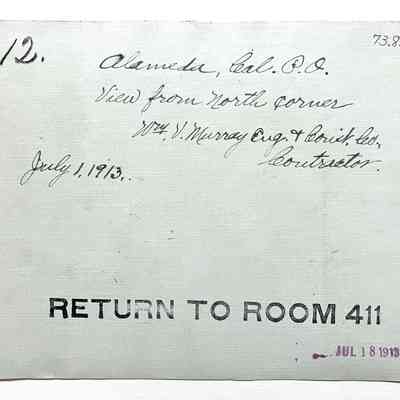 12.
73.8
Alameda, Cal. P.O.
View from North corner
Wm. V. Murray Eng. & Const. Co.
Contractor.
July 1, 1913.
RETURN TO ROOM 411
JUL 18 1913